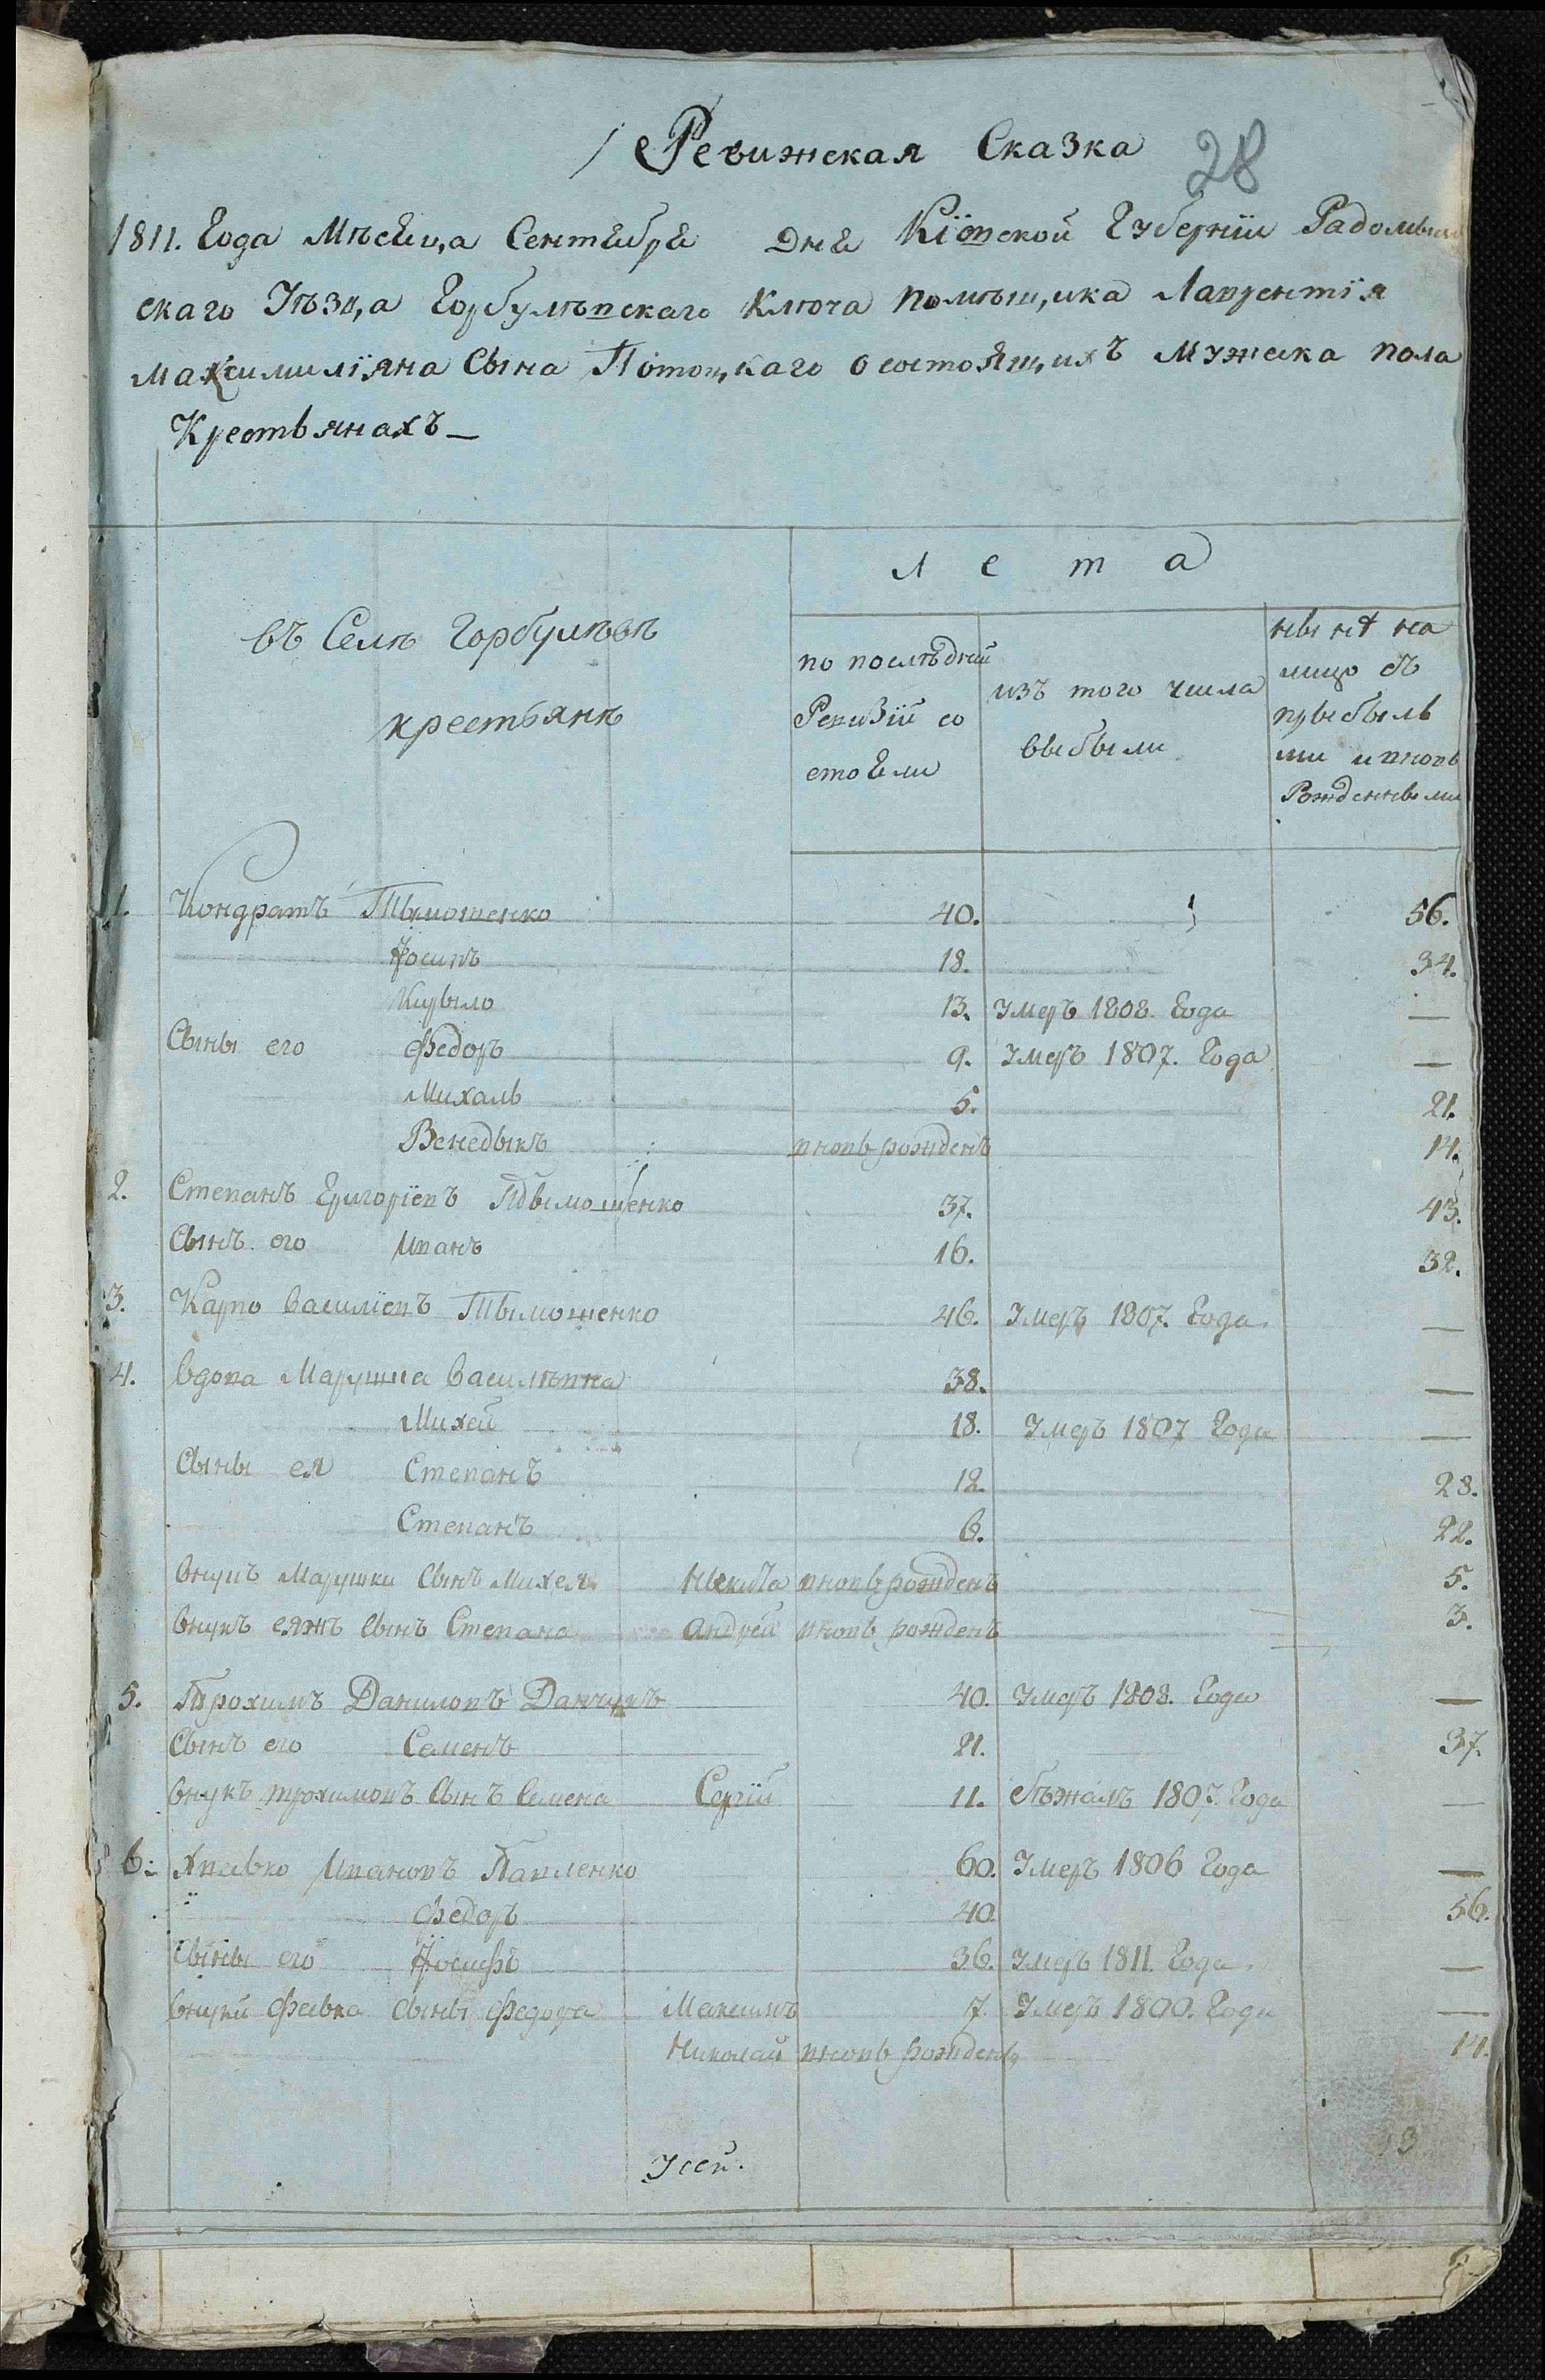 Ревижская Сказка 28
1811. Года Мѣсеца Сентебре дне Кіевской Губерніи Радомысл
скаго Уѣзда Горбулѣвскаго Ключа помѣщика Лаврентія
Максимиліяна Сына Потоцкаго о состоящихъ мужска пола
Крестьянахъ
лета
въ Селѣ Горбулѣвѣ
крестьянъ
по послѣдній
Ревизіи со
стоели
изъ того числа
выбыли
нынѣ на
лицо съ
прыбылы
ми и вновь
Рожденными
1. Кондратъ Тымошенко 40. 56.
Йосипъ 18. 34.
Кирыло 13. Умеръ 1808. Года —
Сыны его Федоръ 9. Умеръ 1807. Года —
Михаль 5. 21.
Венедыкъ вновь рожденъ 14.
2. Степанъ Григоріевъ Тымошенко 37. 43.
Сынъ его Иванъ 16. 32.
3. Карпо Василіевъ Тымошенко 46. Умеръ 1807. Года —
4. Вдова Марушка Василѣвна 38. —
Михей 18. Умеръ 1807 Года —
Сыны ея Степанъ 12. 28.
Степанъ 6. 22.
Внукъ Марушки Сынъ Михея Никита вновь рожденъ 5.
Внукъ еяжъ Сынъ Степана Андрей вновь рожденъ 3.
5. Трохимъ Даниловъ Данчукъ 40. Умеръ 1808. Года —
Сынъ его Семенъ 21. 37.
Внукъ трохимовъ Сынъ Семена Сергій 11. Сбѣжалъ 1807. Года —
6. Ивановъ Павленко 60. Умеръ 1806 Года —
Федоръ 40. 56.
Сыны его Йосифъ 36. Умеръ 1811. Года —
Внуки Сыны Федора Максимъ 7. Умеръ 1800. Года —
Николай вновь рожденъ 14.
13